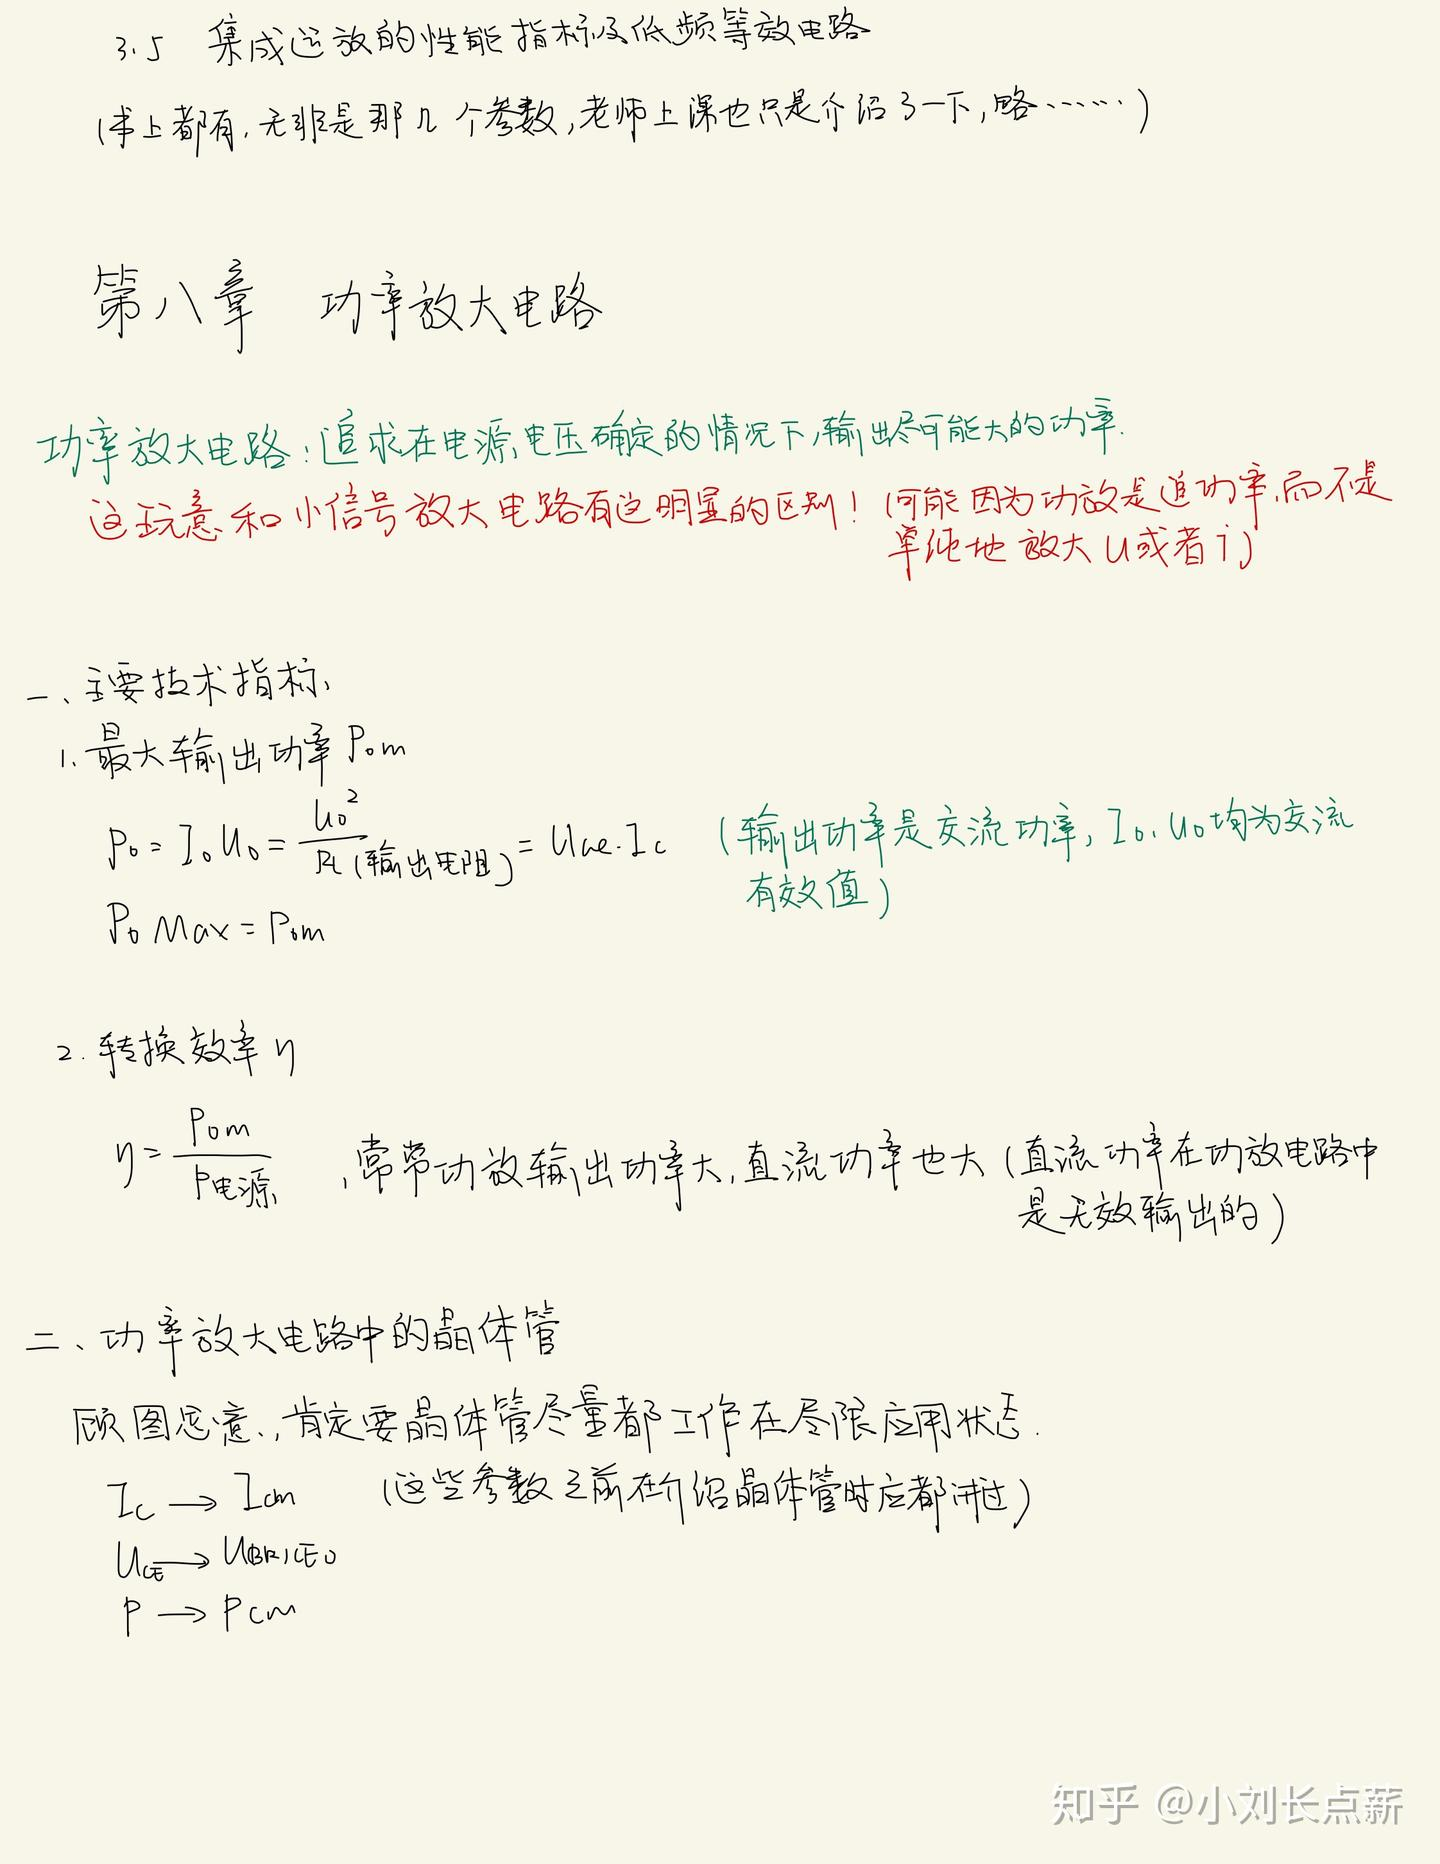 3.5 集成运放的性能指标及低频等效电路
(书上都有,无非是那几个参数,老师上课也只是介绍了一下,略……)
第八章 功率放大电路
功率放大电路:追求在电源电压确定的情况下,输出尽可能大的功率.
这玩意和小信号放大电路有这明显的区别!(可能因为功放是追功率,而不是
单纯地放大u或者i)
一、主要技术指标、
1.最大输出功率Pom
Po = Io Uo = Uo²/RL(输出电阻) = Uce·Ic (输出功率是交流功率, Io、Uo均为交流
有效值)
Po Max = Pom
2.转换效率η
η = Pom/P电源 ,常常功放输出功率大,直流功率也大(直流功率在功放电路中
是无效输出的)
二、功率放大电路中的晶体管
顾图思意,肯定要晶体管尽量都工作在尽限应用状态.
Ic → Icm (这些参数之前在介绍晶体管时应都讲过)
UCE → U(BR)CEO
P → Pcm
知乎 @小刘长点薪